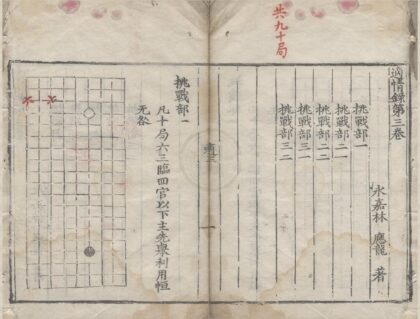 共九十局
適情錄第三卷
永嘉林 應龍 著
挑戰部一
挑戰部二一
挑戰部二二
挑戰部三一
挑戰部三二
一
挑戰部一
凡十局六三臨四官以下主先舉利用恒
无咎